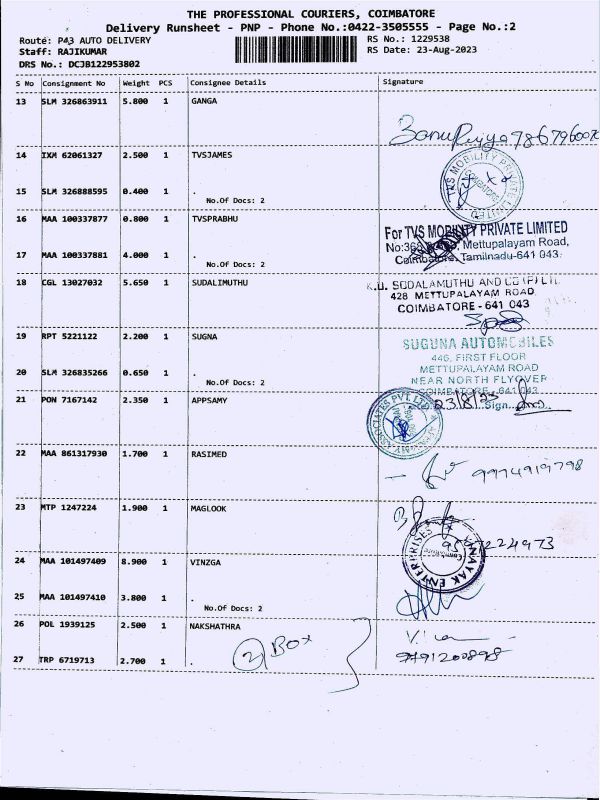 THE PROFESSIONAL COURIERS, COIMBATORE
Delivery Runsheet - PNP - Phone No.:0422-3505555 - Page No.:2
Route: P43 AUTO DELIVERY RS No.: 1229538
Staff: RAJIKUMAR RS Date: 23-Aug-2023
DRS No.: DCJB122953802
S No Consignment No Weight PCS Consignee Details Signature
13 SLM 326863911 5.800 1 GANGA
14 IXM 62061327 2.500 1 TVSJAMES
TVS MOBILITY PRIVATE LIMITED
15 SLM 326888595 0.400 1 .
No.Of Docs: 2
16 MAA 100337877 0.800 1 TVSPRABHU
For TVS MOBILITY PRIVATE LIMITED
Mettupalayam Road,
Coimbatore, Tamilnadu-641 043.
17 MAA 100337881 4.000 1 .
No.Of Docs: 2
18 CGL 13027032 5.650 1 SUDALIMUTHU
428 METTUPALAYAM ROAD
COIMBATORE - 641 043
19 RPT 5221122 2.200 1 SUGNA
SUGUNA AUTOMOBILES
446, FIRST FLOOR
METTUPALAYAM ROAD
NEAR NORTH FLYOVER
COIMBATORE - 641 043
20 SLM 326835266 0.650 1 .
No.Of Docs: 2
21 PON 7167142 2.350 1 APPSAMY
23/8/23 Sign.
22 MAA 861317930 1.700 1 RASIMED
23 MTP 1247224 1.900 1 MAGLOOK
24 MAA 101497409 8.900 1 VINZGA
VINAYAK ENTERPRISES
25 MAA 101497410 3.800 1 .
No.Of Docs: 2
26 POL 1939125 2.500 1 NAKSHATHRA
2 BOX
9791200898
27 TRP 6719713 2.700 1 .